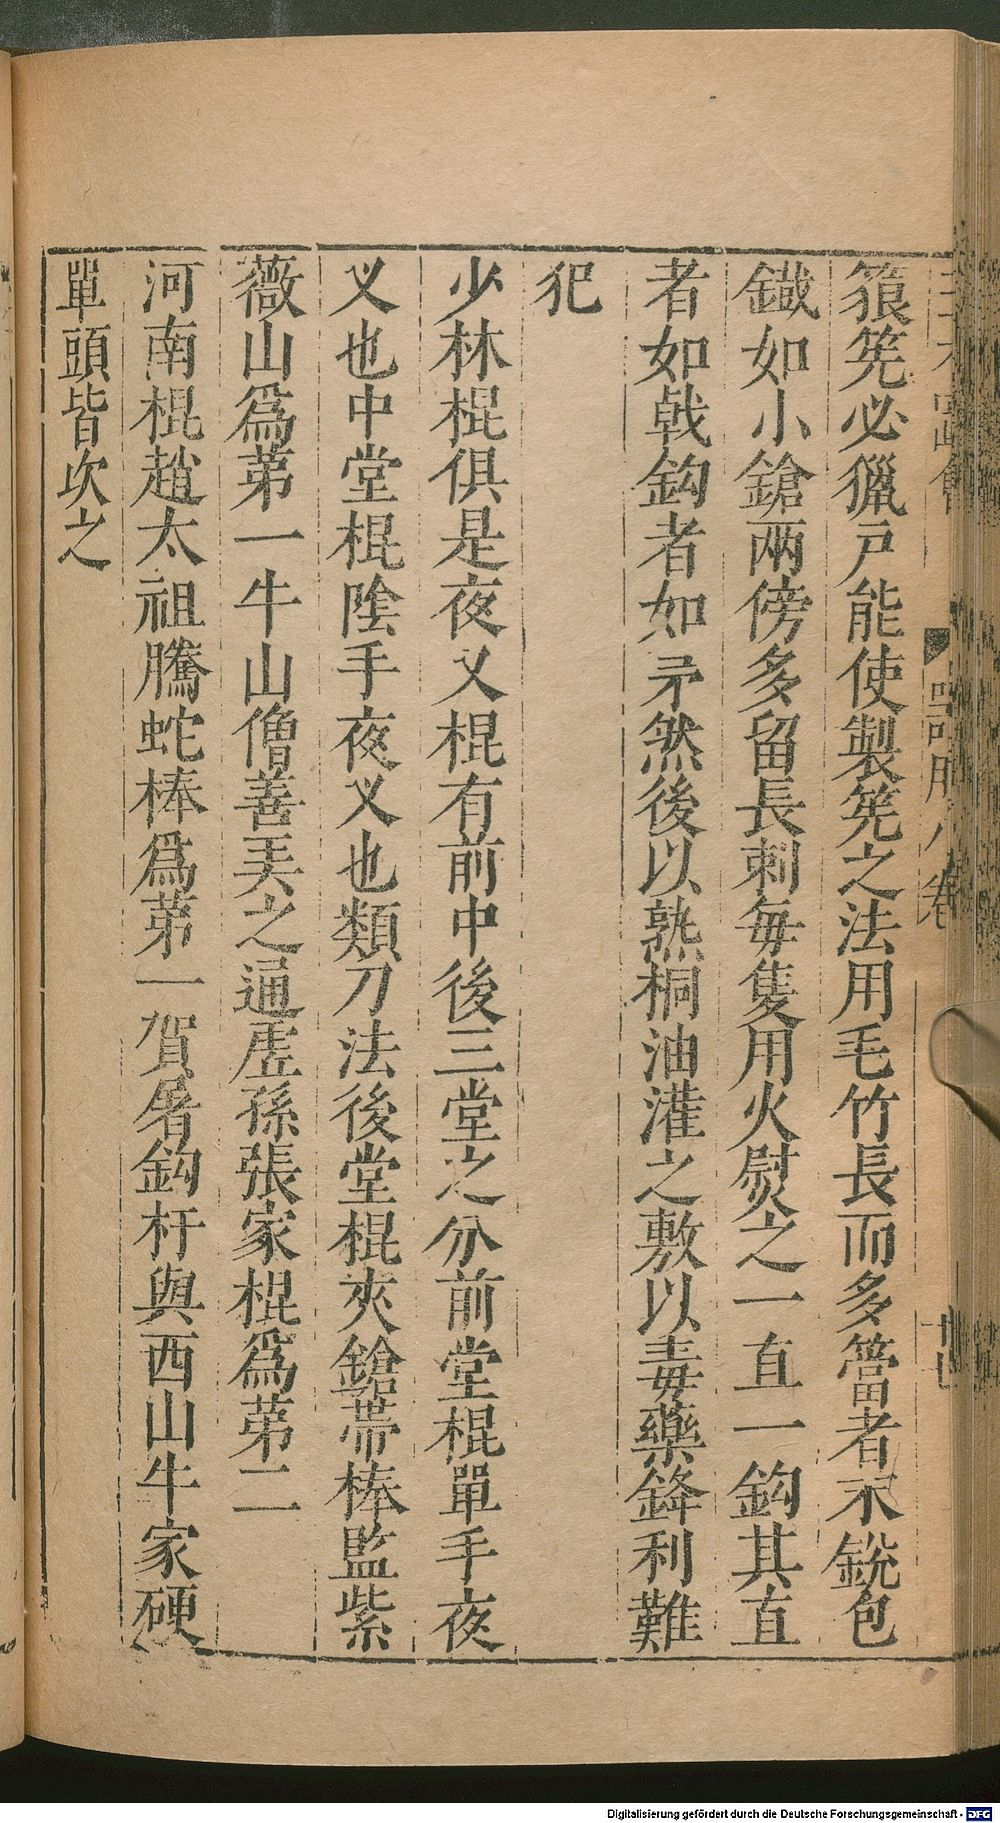 器用八卷
筤筅必獵戸能使製筅之法用毛竹長而多簹者末銳包
鐵如小鎗兩傍多留長刺每隻用火熨之一直一鈎其直
者如戟鈎者如矛然後以熟桐油灌之敷以毒藥鋒利難
犯
少林棍俱是夜叉棍有前中後三堂之分前堂棍單手夜
叉也中堂棍陰手夜叉也類刀法後堂棍夾鎗帶棒監紫
薇山爲第一牛山僧善美之通虗孫張家棍爲第二
河南棍趙太祖騰蛇棒爲第一賀屠鈎杆與西山牛家硬
單頭皆次之
Digitalisierung gefördert durch die Deutsche Forschungsgemeinschaft - DFG